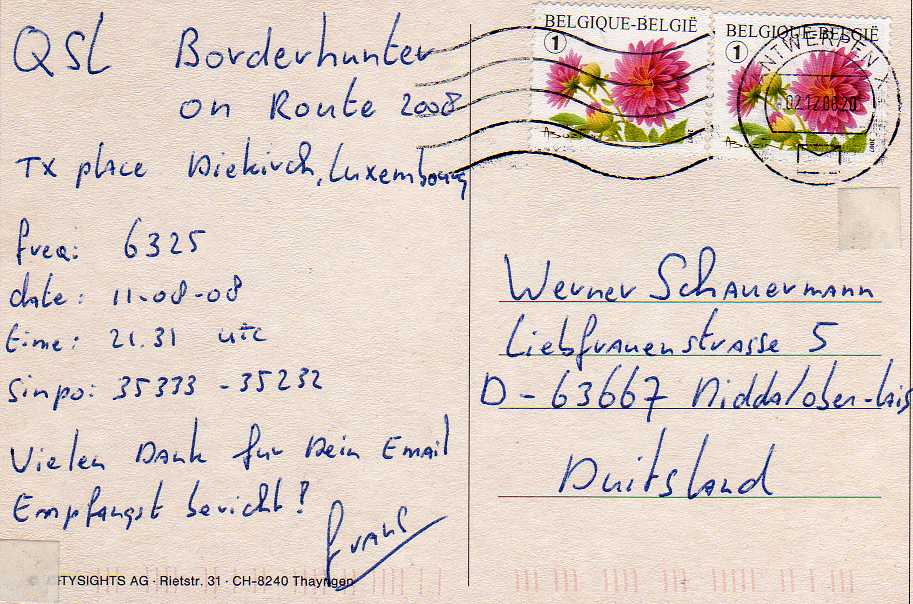 QSL Borderhunter
on Route 2008
TX place Diekirch, Luxembourg
freq: 6325
date: 11-08-08
time: 21.31 utc
Sinpo: 35333 - 35232
Vielen Dank für Dein Email
Empfangst bericht!
frans
TYSIGHTS AG · Rietstr. 31 · CH-8240 Thayngen
BELGIQUE-BELGIË
1
BELGIQUE-BELGIË
1
ANTWERPEN X
02.12.08.20
Werner Schauermann
Liebfrauenstrasse 5
D - 63667 Nidda/ober-lais
Duitsland